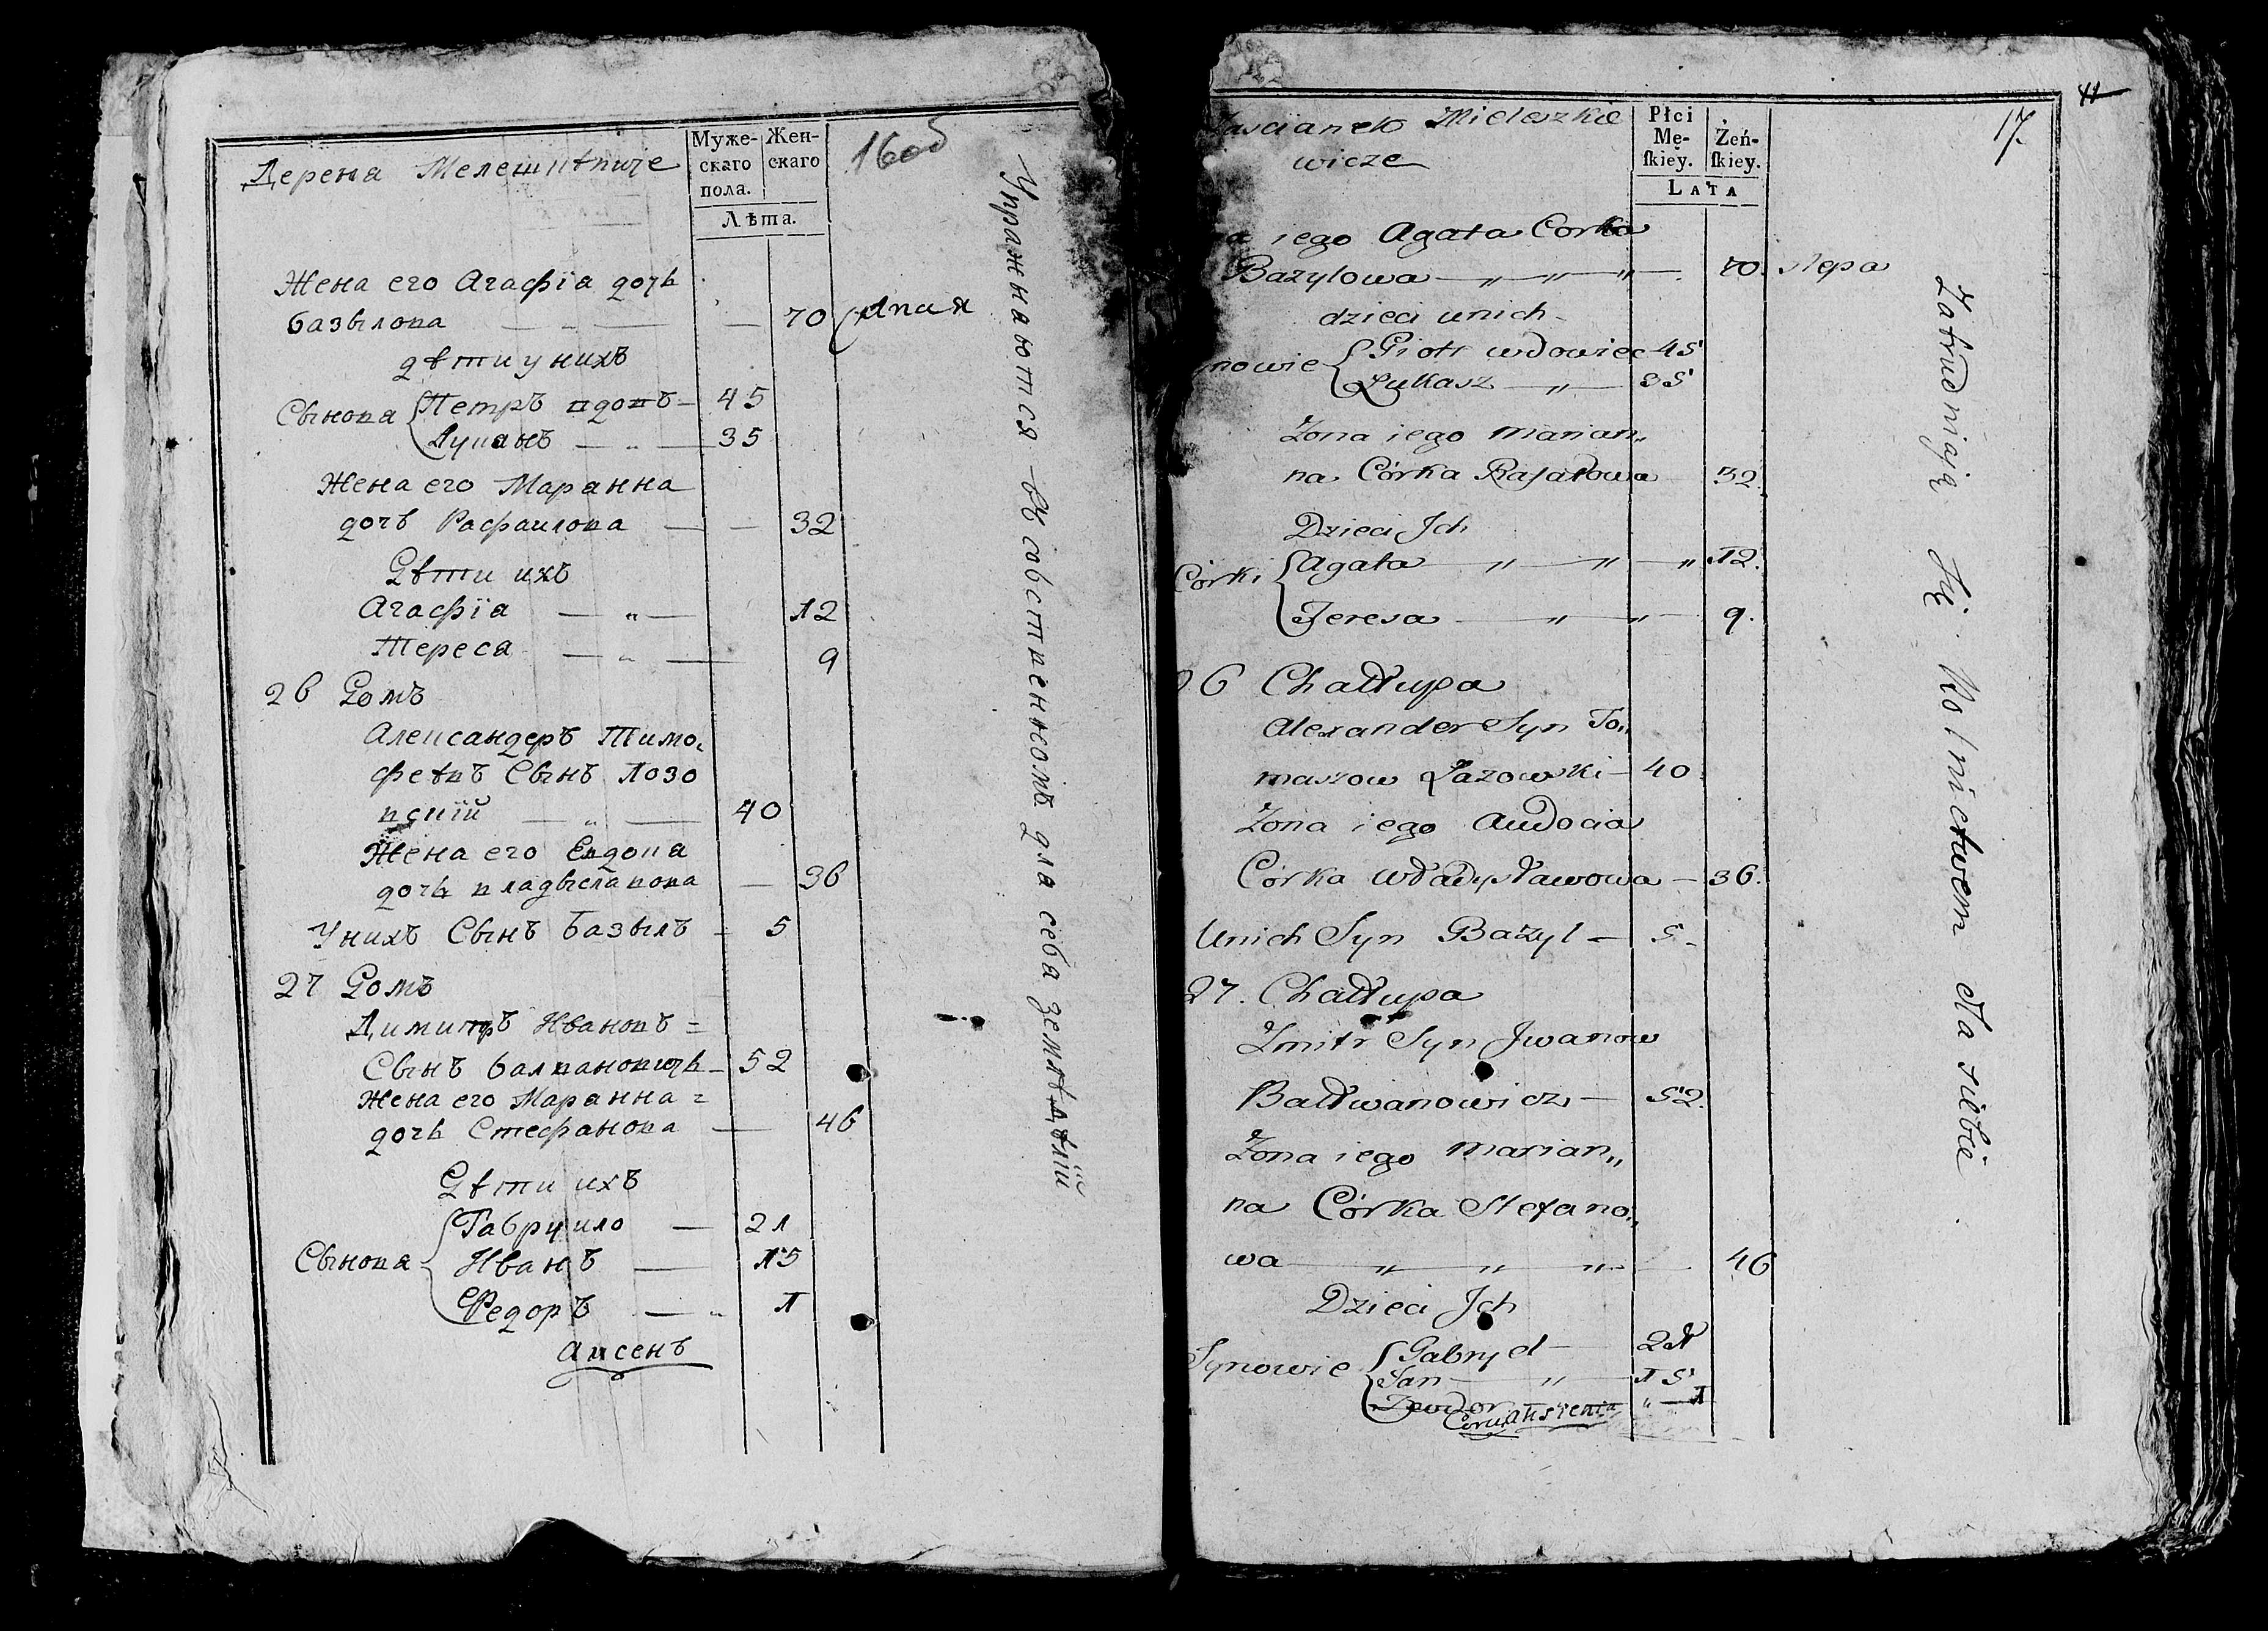 Деревня Мелешкѣвиче
Муже-
скаго
пола.
Жен-
скаго
Лѣта.
16об
Жена его Агафїа дочь
базылова — „ — — 70
дѣти у нихъ
Сынова Петръ вдовъ — 45
Лукашъ — „ — 35
Жена его Маранна
дочь Рафаилова — — 32
Дѣти ихъ
Агафїа — „ — 12
Тереса — „ — 9
26 Домъ
Александеръ Тимо„
феѣвъ Сынъ Лозо
вскїй — „ — 40
Жена его Евдокиа
дочь владыславова — 36
У нихъ Сынъ базылъ — 5
27 Домъ
Димитръ Ивановъ =
Сынъ балвановичь — 52
Жена его Маранна =
дочь Стефанова — 46
Дѣти ихъ
Сынова Габриило — 21
Иванъ — 15
Федоръ — „ 1
аксенъ
Упражнаются въ собственномъ для себа земледѣлїи
Zascianek Mieleszkie
wicze
Płci
Mę-
ſkiey.
Żeń-
ſkiey.
LATA
17
11
a iego Agata Corka
Bazylowa — „ — „ — „ — 70.
dzieci unich
nowie Piotr wdowiec 45
Łukasz — „ — 35
Zona iego Marian„
na Córka Rafałowa 32.
Dzieci Jch
Córki Agata — „ — „ — „ 12.
Teresa — „ — „ — 9.
26 Chałłupa
Alexander Syn To„
maszow Łazowski — 40.
Zona iego Audocia
Córka Władysławowa — 36.
Unich Syn Bazyl — 5 -
27. Chałłupa
Zmitr Syn Jwanow
Bałłwanowicz — 52.
Zona iego Marian„
na Córka Stefano„
wa — „ — „ — „ — 46
Dzieci Jch
Synowie Gabryel — 21
Jan — „ — 15
Teodor „ — 1
Zatrudniaią się Rolnictwem dla siebie